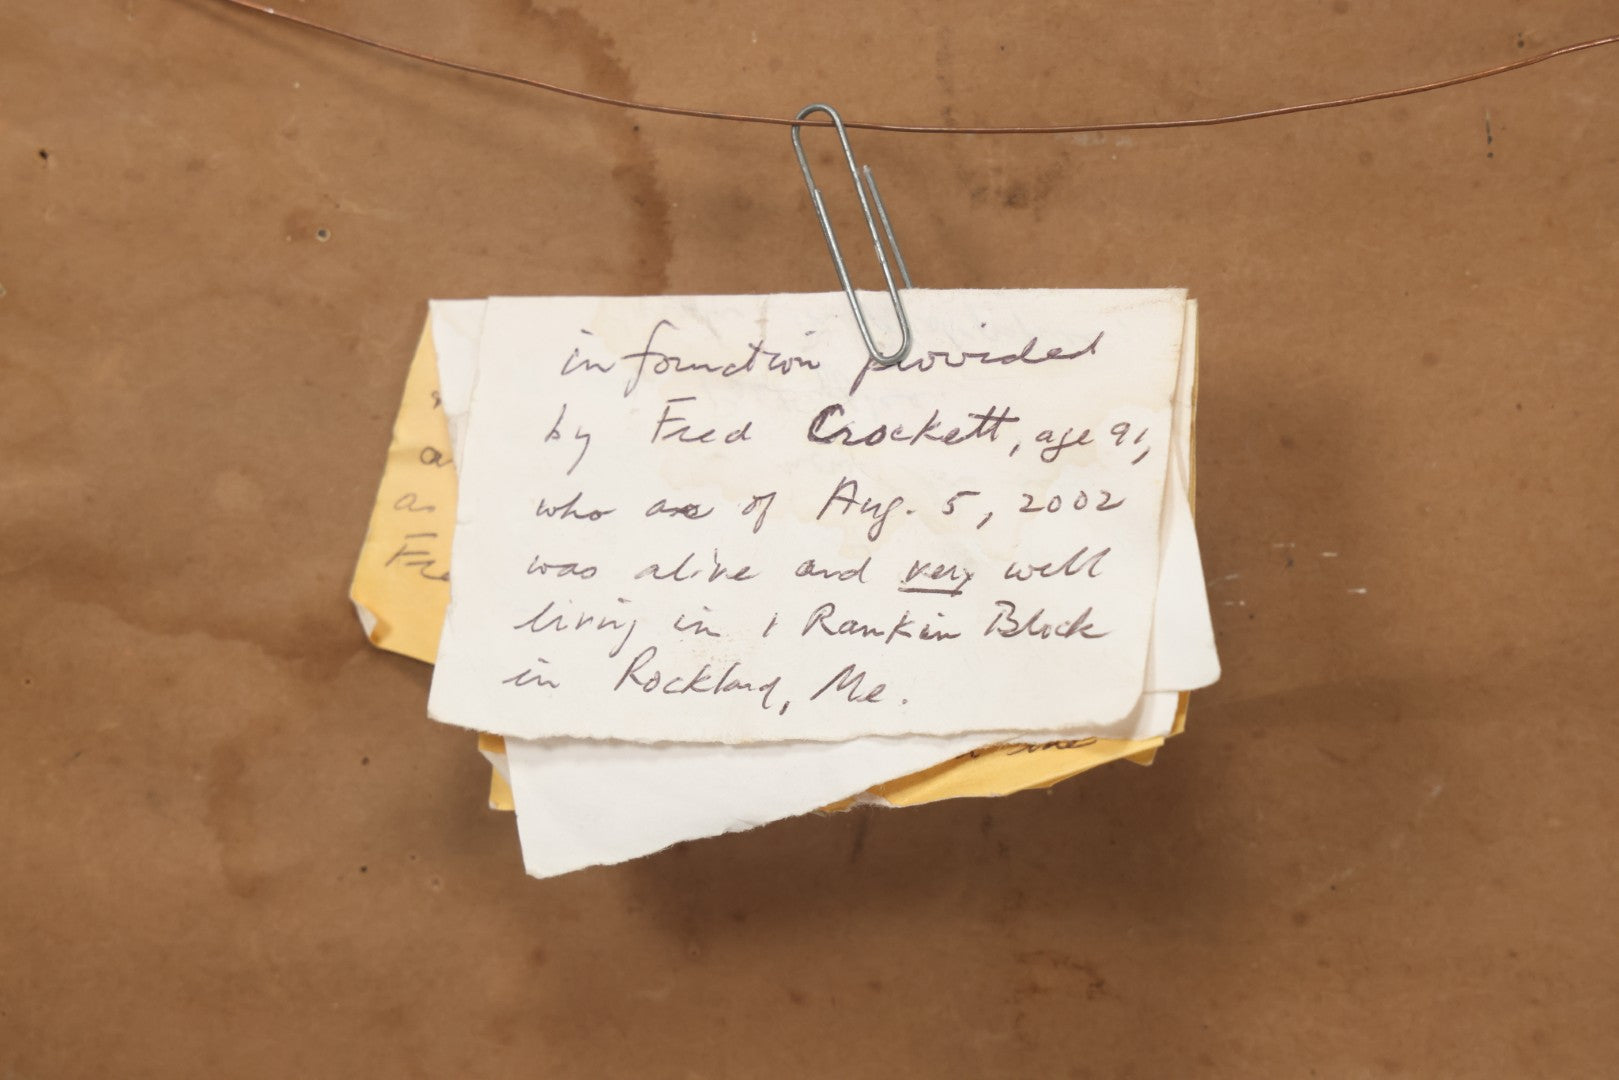 information provided
by Fred Crockett, age 91,
who as of Aug. 5, 2002
was alive and very well
living in 1 Rankin Block
in Rockland, Me.
as
Fre